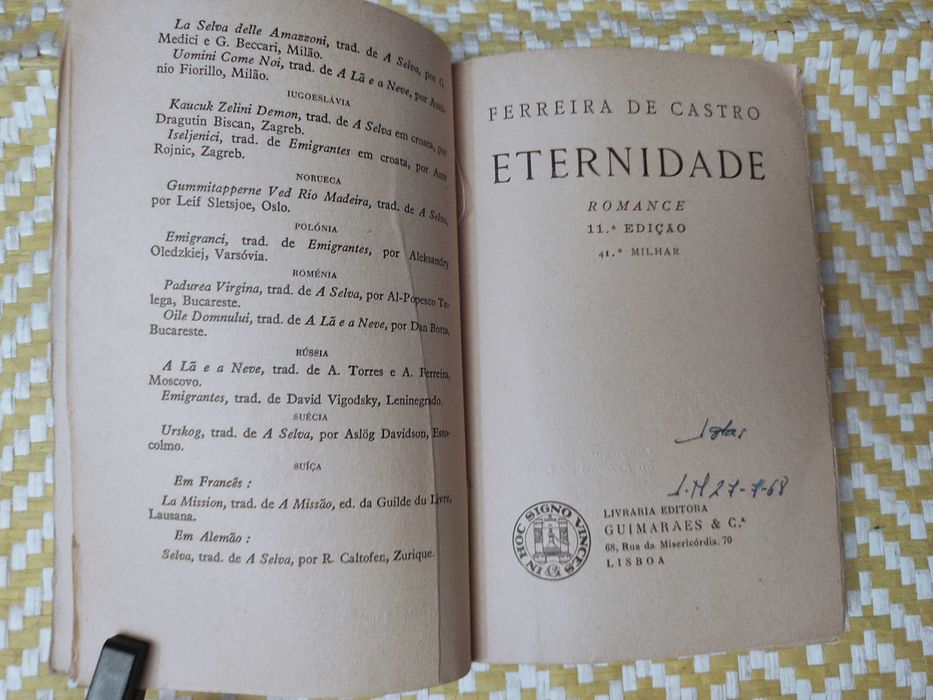 La Selva delle Amazzoni, trad. de A Selva, por G.
Medici e G. Beccari, Milão.
Uomini Come Noi, trad. de A Lã e a Neve, por
nio Fiorillo, Milão.
IUGOESLÁVIA
Kaucuk Zelini Demon, trad. de A Selva em croata, por
Dragutin Biscan, Zagreb.
Iseljenici, trad. de Emigrantes em croata, por Anne
Rojnic, Zagreb.
NORUECA
Gummitapperne Ved Rio Madeira, trad. de A Selva,
por Leif Sletsjoe, Oslo.
POLÓNIA
Emigranci, trad. de Emigrantes, por Aleksandry
Oledzkiej, Varsóvia.
ROMÉNIA
Padurea Virgina, trad. de A Selva, por Al-Popesco Te-
lega, Bucareste.
Oile Domnului, trad. de A Lã e a Neve, por Dan Botta,
Bucareste.
RÚSSIA
A Lã e a Neve, trad. de A. Torres e A. Ferreira,
Moscovo.
Emigrantes, trad. de David Vigodsky, Leninegrado.
SUÉCIA
Urskog, trad. de A Selva, por Aslög Davidson, Esto-
colmo.
SUÍÇA
Em Francês :
La Mission, trad. de A Missão, ed. da Guilde du Livre,
Lausana.
Em Alemão :
Selva, trad. de A Selva, por R. Caltofen, Zurique.
FERREIRA DE CASTRO
ETERNIDADE
ROMANCE
11.ª EDIÇÃO
41.º MILHAR
27-7-68
IN HOC SIGNO VINCES
LIVRARIA EDITORA
GUIMARAES & C.ª
68, Rua da Misericórdia, 70
LISBOA